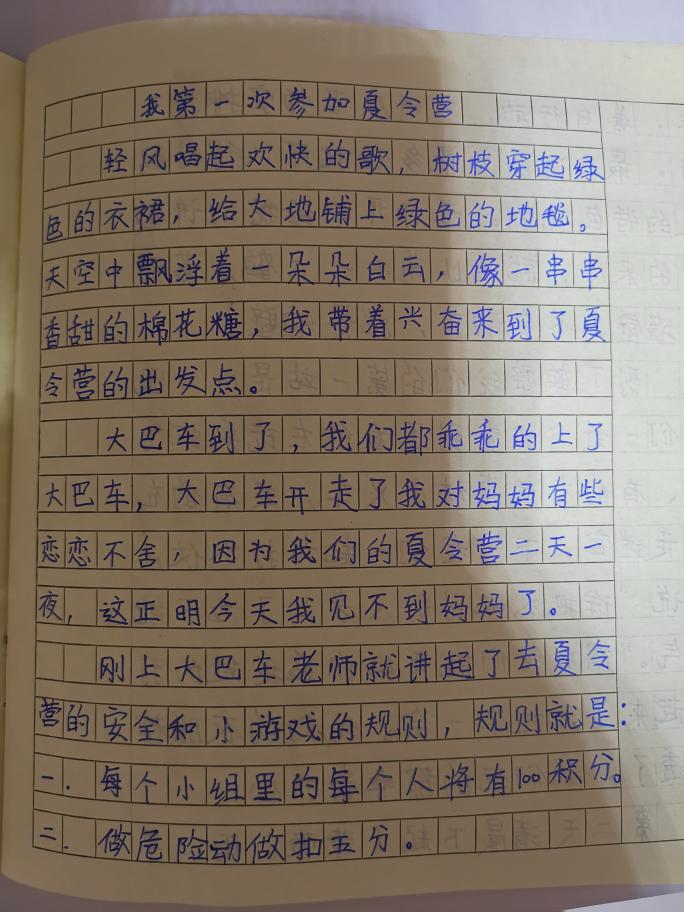 我第一次参加夏令营
轻风唱起欢快的歌，树枝穿起绿
色的衣裙，给大地铺上绿色的地毯。
天空中飘浮着一朵朵白云，像一串串
香甜的棉花糖，我带着兴奋来到了夏
令营的出发点。
大巴车到了，我们都乖乖的上了
大巴车，大巴车开走了我对妈妈有些
恋恋不舍，因为我们的夏令营二天一
夜，这正明今天我见不到妈妈了。
刚上大巴车老师就讲起了去夏令
营的安全和小游戏的规则，规则就是：
一．每个小组里的每个人将有100积分。
二．做危险动做扣五分。